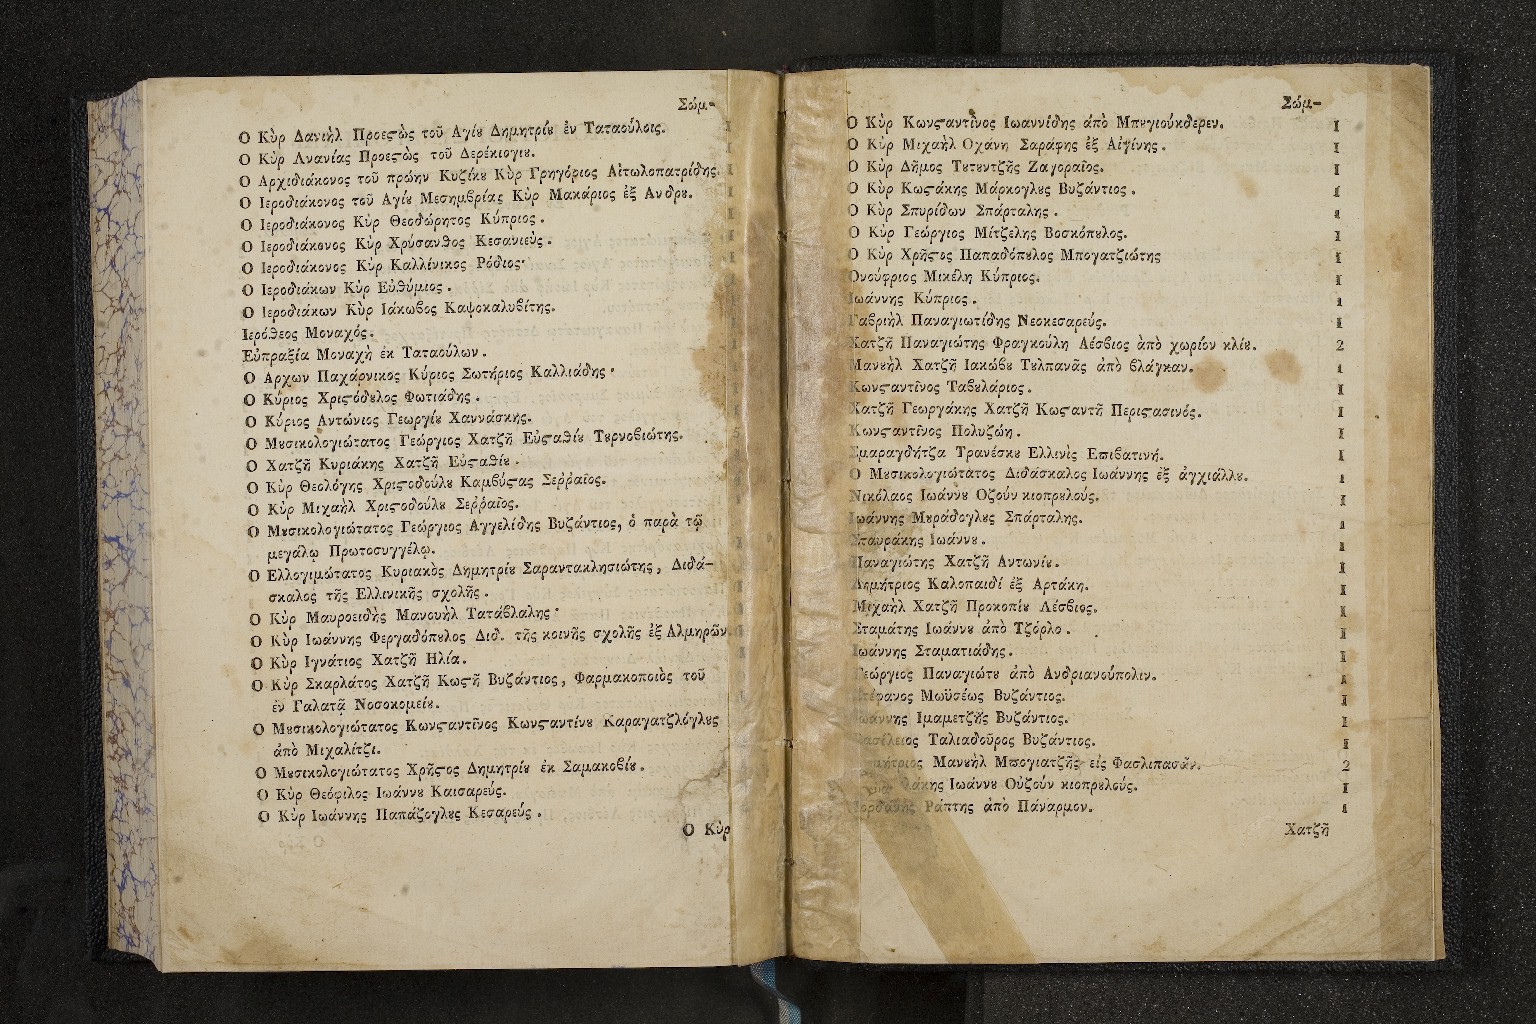 Σώμ-
Ο Κὺρ Δανιὴλ Προεςὼς τοῦ Αγίȣ Δημητρίȣ ἐν Ταταούλοις.
Ο Κὺρ Ανανίας Προεςὼς τοῦ Δερέκιογιȣ.
Ο Αρχιδιάκονος τοῦ πρώην Κυζίκȣ Κὺρ Γρηγόριος Αἰτωλοπατρίδης. 1
Ο Ιεροδιάκονος τοῦ Αγίȣ Μεσημβρίας Κὺρ Μακάριος ἐξ Ανδρȣ. 1
Ο Ιεροδιάκονος Κὺρ Θεοδώρητος Κύπριος. 1
Ο Ιεροδιάκονος Κὺρ Χρύσανθος Κεσανιεὺς. 1
Ο Ιεροδιάκονος Κὺρ Καλλίνικος Ρόδιος· 1
Ο Ιεροδιάκων Κὺρ Εὐθύμιος.
Ο Ιεροδιάκων Κὺρ Ιάκωβος Καψοκαλυβίτης.
Ιερόθεος Μοναχός.
Εὐπραξία Μοναχὴ ἐκ Ταταούλων.
Ο Αρχων Παχάρνικος Κύριος Σωτήριος Καλλιάδης·
Ο Κύριος Χριςόδȣλος Φωτιάδης.
Ο Κύριος Αντώνιος Γεωργίȣ Χαννάσκης.
Ο Μȣσικολογιώτατος Γεώργιος Χατζῆ Εὐςαθίȣ Τȣρνοβιώτης. 5
Ο Χατζῆ Κυριάκης Χατζῆ Εὐςαθίȣ.
Ο Κὺρ Θεολόγης Χριςοδούλȣ Καμβύςας Σεῤῥαῖος.
Ο Κὺρ Μιχαὴλ Χριςοδούλȣ Σεῤῥαῖος.
Ο Μȣσικολογιώτατος Γεώργιος Αγγελίδης Βυζάντιος, ὁ παρὰ τῷ
μεγάλῳ Πρωτοσυγγέλῳ.
Ο Ελλογιμώτατος Κυριακὸς Δημητρίȣ Σαραντακλησιώτης, Διδά-
σκαλος τῆς Ελλινικῆς σχολῆς.
Ο Κὺρ Μαυροειδὴς Μανουὴλ Τατάβλαλης·
Ο Κὺρ Ιωάννης Φεργαδόπȣλος Διδ. τῆς κοινῆς σχολῆς ἐξ Αλμηρῶν.
Ο Κὺρ Ιγνάτιος Χατζῆ Ηλία.
Ο Κὺρ Σκαρλάτος Χατζῆ Κωςῆ Βυζάντιος, Φαρμακοποιὸς τοῦ
ἐν Γαλατᾷ Νοσοκομείȣ.
Ο Μȣσικολογιώτατος Κωνςαντῖνος Κωνςαντίνȣ Καραγατζλόγλȣς
ἀπὸ Μιχαλίτζι.
Ο Μȣσικολογιώτατος Χρῆςος Δημητρίȣ ἐκ Σαμακοβίȣ.
Ο Κὺρ Θεόφιλος Ιωάννȣ Καισαρεύς.
Ο Κὺρ Ιωάννης Παπάζογλȣς Κεσαρεύς.
Ο Κὺρ
Σώμ-
Ο Κὺρ Κωνςαντῖνος Ιωαννίδης ἀπὸ Μπȣγιούκδερεν. 1
Ο Κὺρ Μιχαὴλ Οχάνη Σαράφης ἐξ Αἰγίνης. 1
Ο Κὺρ Δῆμος Τȣτȣντζῆς Ζαγοραῖος. 1
Ο Κὺρ Κωςάκης Μάρκογλȣς Βυζάντιος. 1
Ο Κὺρ Σπυρίδων Σπάρταλης. 1
Ο Κὺρ Γεώργιος Μίτζελης Βοσκόπȣλος. 1
Ο Κὺρ Χρῆςος Παπαδόπȣλος Μπογατζιώτης 1
Ονούφριος Μικέλη Κύπριος. 1
Ιωάννης Κύπριος. 1
Γαβριὴλ Παναγιωτίδης Νεοκεσαρεὺς. 1
Χατζῆ Παναγιώτης Φραγκούλη Λέσβιος ἀπὸ χωρίον κλίȣ. 2
Μανȣὴλ Χατζῆ Ιακώβȣ Τȣλπανᾶς ἀπὸ βλάγκαν. 1
Κωνςαντῖνος Ταβȣλάριος. 1
Χατζῆ Γεωργάκης Χατζῆ Κωςαντῆ Περιςασινός. 1
Κωνςαντῖνος Πολυζώη. 1
Σμαραγδήτζα Τρανέσκȣ Ελληνὶς Επιβατινή. 1
Ο Μȣσικολογιώτατος Διδάσκαλος Ιωάννης ἐξ ἀγχιάλλȣ. 1
Νικόλαος Ιωάννȣ Οζούν κιοπρȣλούς. 1
Ιωάννης Μȣράδογλȣς Σπάρταλης. 1
Σταυράκης Ιωάννȣ. 1
Παναγιώτης Χατζῆ Αντωνίȣ. 1
Δημήτριος Καλοπαιδί ἐξ Αρτάκη. 1
Μιχαὴλ Χατζῆ Προκοπίȣ Λέσβιος. 1
Σταμάτης Ιωάννȣ ἀπὸ Τζόρλο. 1
Ιωάννης Σταματιάδης. 1
Γεώργιος Παναγιώτȣ ἀπὸ Ανδριανούπολιν. 1
Στέφανος Μωϋσέως Βυζάντιος. 1
Ιωάννης Ιμαμετζῆς Βυζάντιος. 1
Βασίλειος Ταλιαδοῦρος Βυζάντιος. 1
Δημήτριος Μανȣὴλ Μπογιατζῆς εἰς Φασλιπασᾶν. 2
Ιωάννȣ Οὐζούν κιοπρȣλούς. 1
Ράπτης ἀπὸ Πάναρμον. 1
Χατζῆ